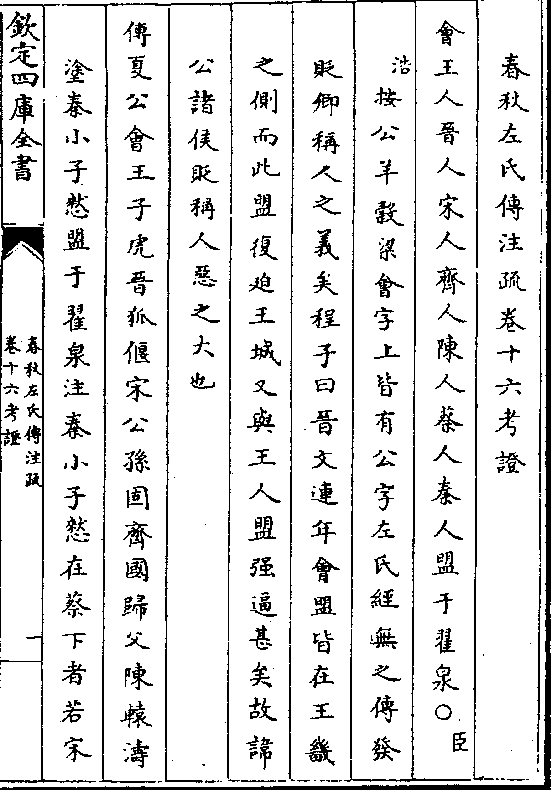 春秋左氏傳注疏卷十六考證
會王人晉人宋人齊人陳人蔡人秦人盟于翟泉○臣
浩按公羊穀梁會字上皆有公字左氏經無之傳發
貶卿稱人之義矣程子曰晉文連年會盟皆在王畿
之側而此盟復迫王城又與王人盟强逼甚矣故諱
公諸侯貶稱人惡之大也
傳夏公會王子虎晉狐偃宋公孫固齊國歸父陳轅濤
塗秦小子憖盟于翟泉注秦小子憖在蔡下者若宋
欽定四庫全書
春秋左氏傳注疏
卷十六考證
一